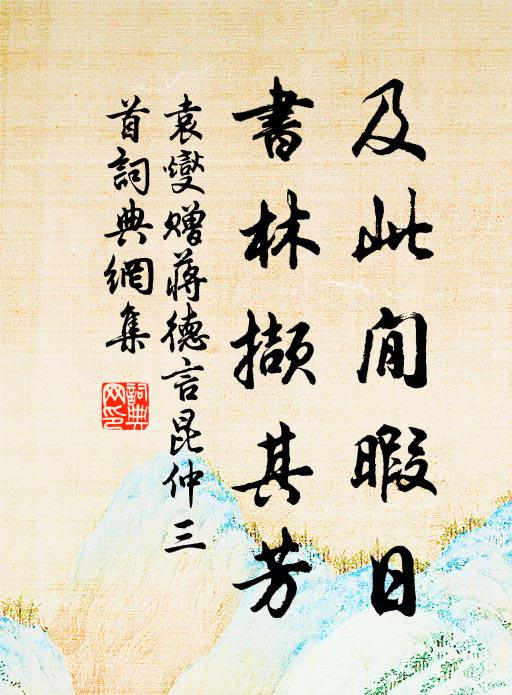 及此閒暇日
書林擷其芳
袁燮贈蔣德言昆仲三
首詞典網集
詞典
网印